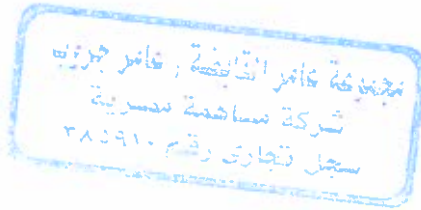 مجموعة عامر القابضة , عامر جروب
شركة مساهمة مصرية
سجل تجارى رقم ٣٨٥٩١٠